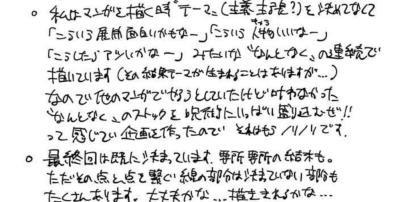 ○ 私はマンガを描く時"テーマ"(主義主張?)を決めてなくて
「こういう展開面白いかもなー」「こういう人物(キャラ)いいなー」
「こうしたらアツいかなー」みたいな"なんとなく"の連続で
描いています(その結果テーマが生まれることはありますが…)
なので他のマンガでやろうとしていたけど叶わなかった
"なんとなく"のストックを いっぱい盛り込むぜ!!
って感じで企画を作ったので それはもうノリノリです。
○ 最終回は既に決まっています。要所要所の結末も。
ただその点と点を繋ぐ線の部分は決まっていない部分も
たくさんあります。大丈夫かな…描ききれるかな…